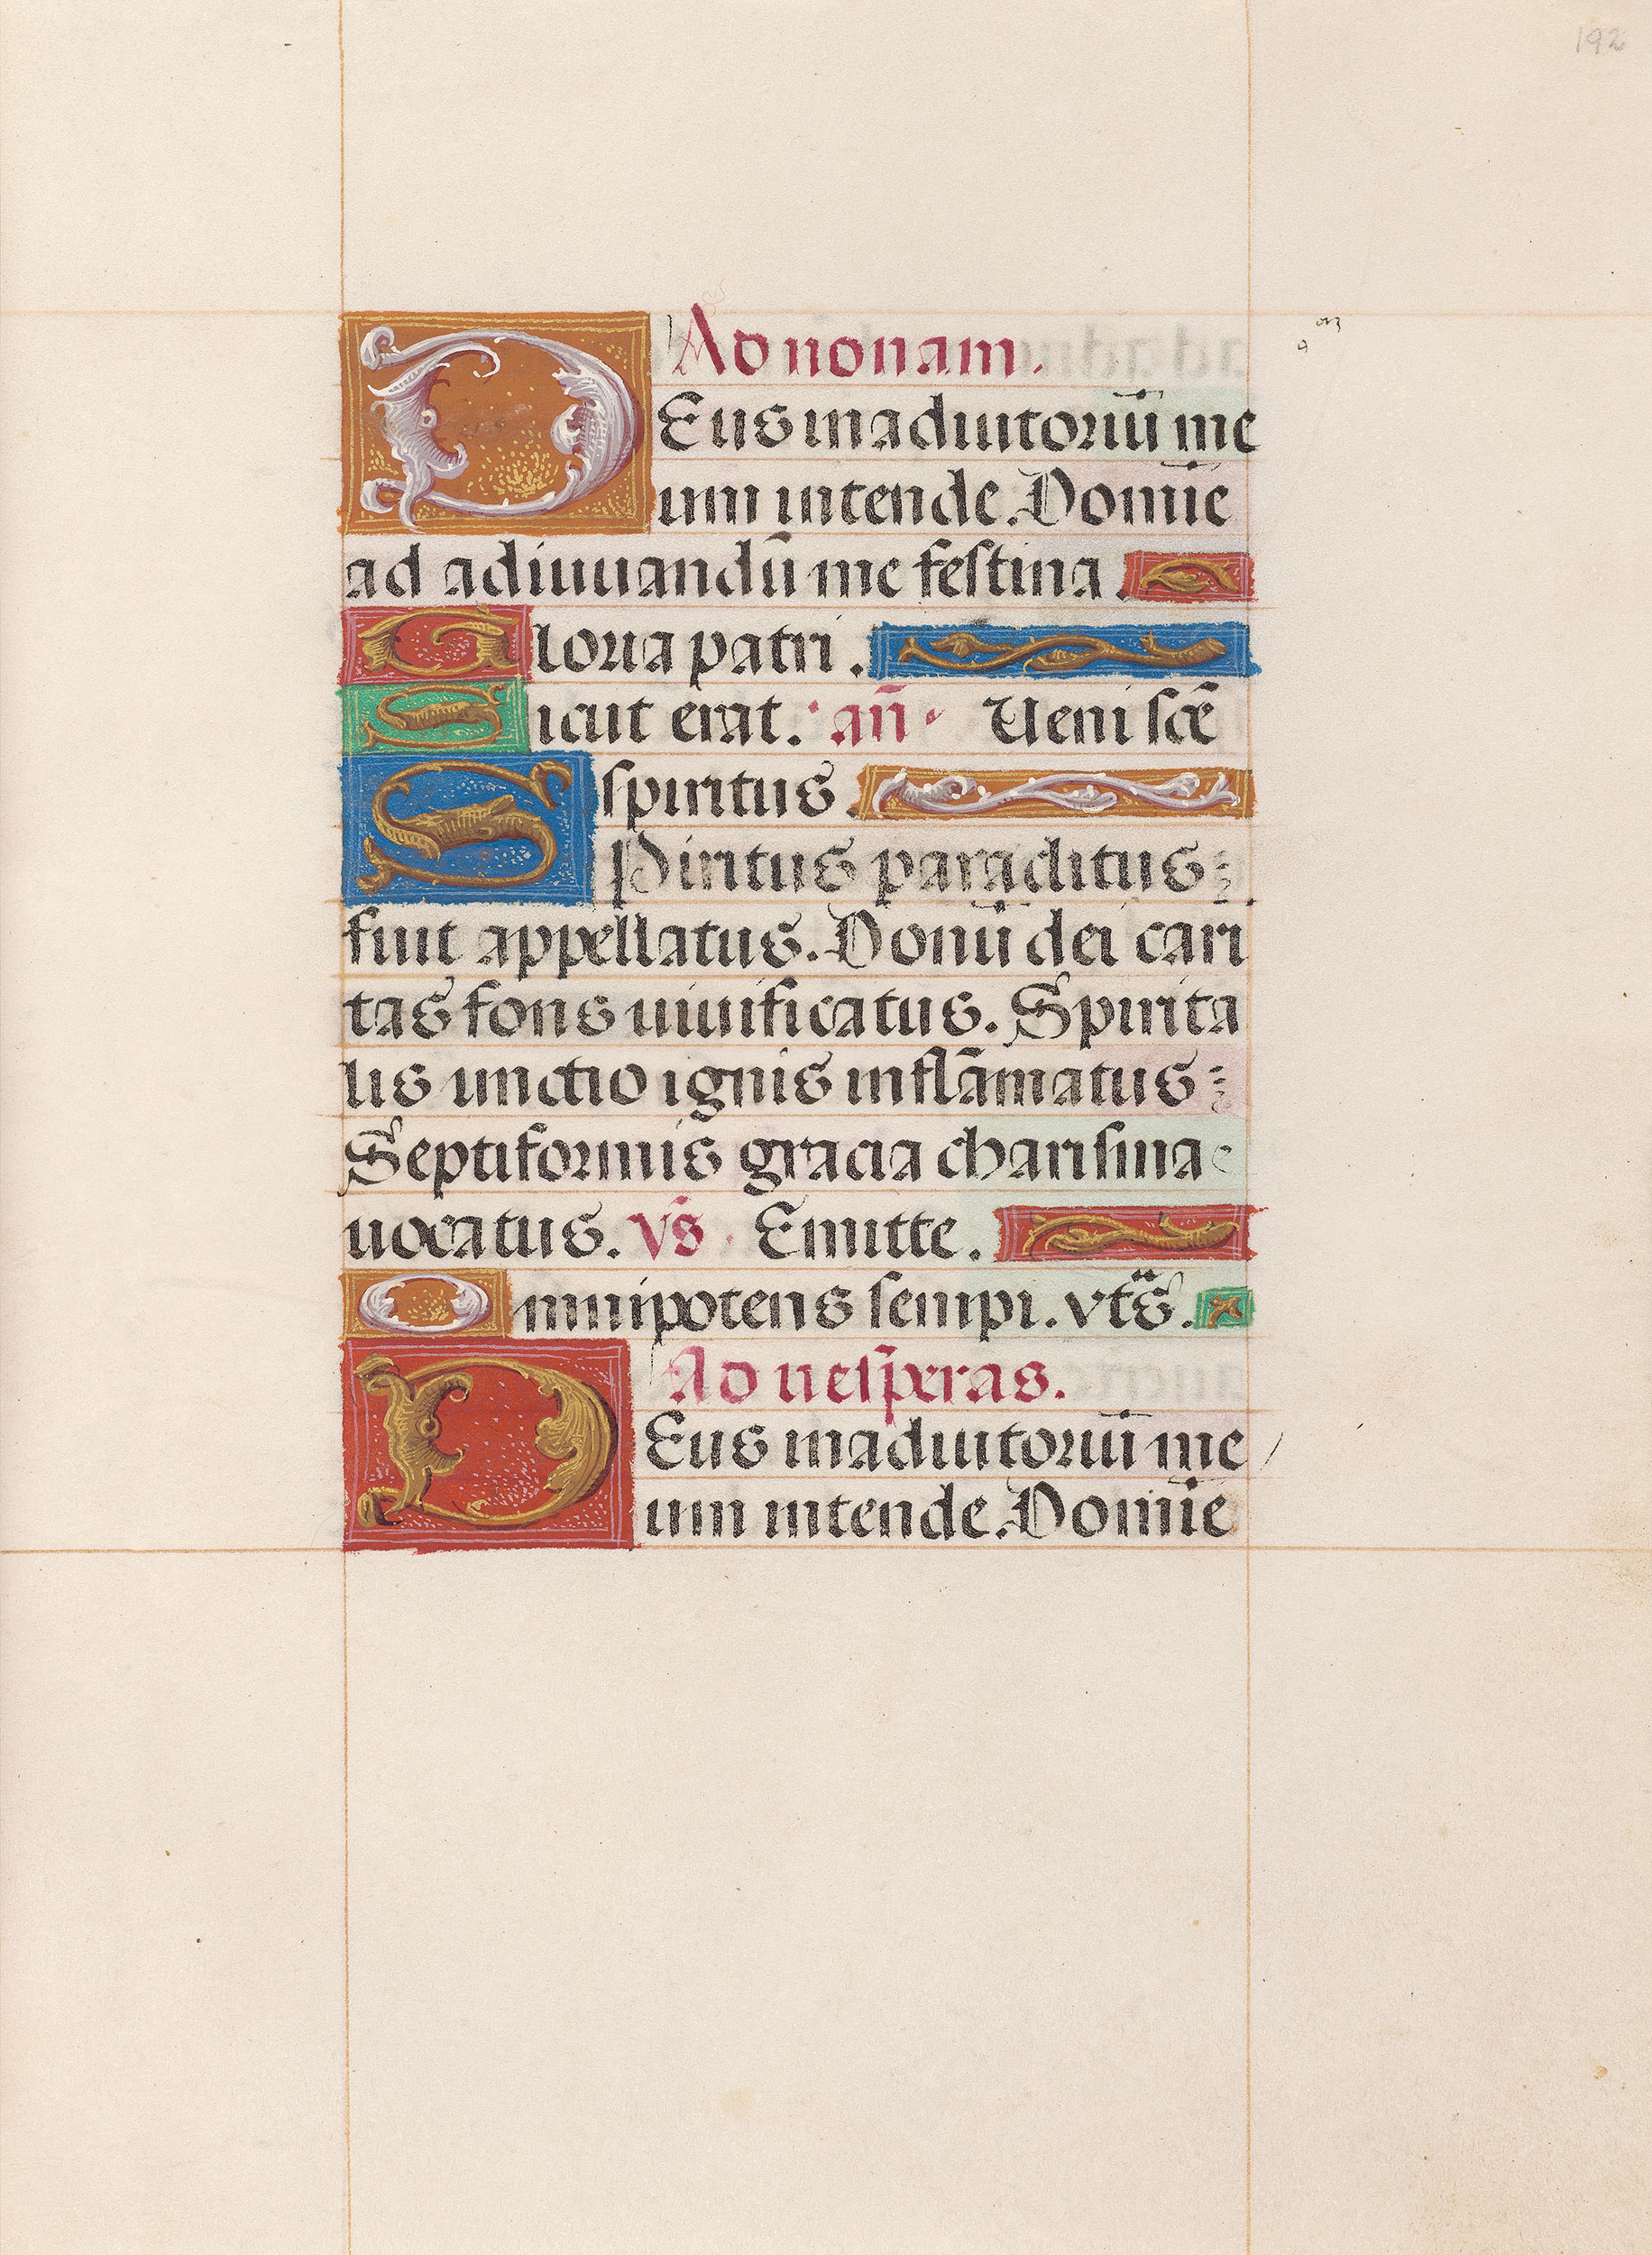 192
Ad nonam.
Deus in adiutoriū me
um intende. Domīe
ad adiuuandū me festina.
Gloria patri.
Sicut erat. an̄ Veni scē
spiritus.
Spiritus paraclitus
fuit appellatus. Donū dei cari
tas fons uiuificatus. Spirita
lis unctio ignis inflāmatus
Septiformis gracia charisma
uocatus. vs̄. Emitte.
Omnipotens sempi. vts̄.
Ad uesperas.
Deus in adiutoriū me
um intende. Domīe